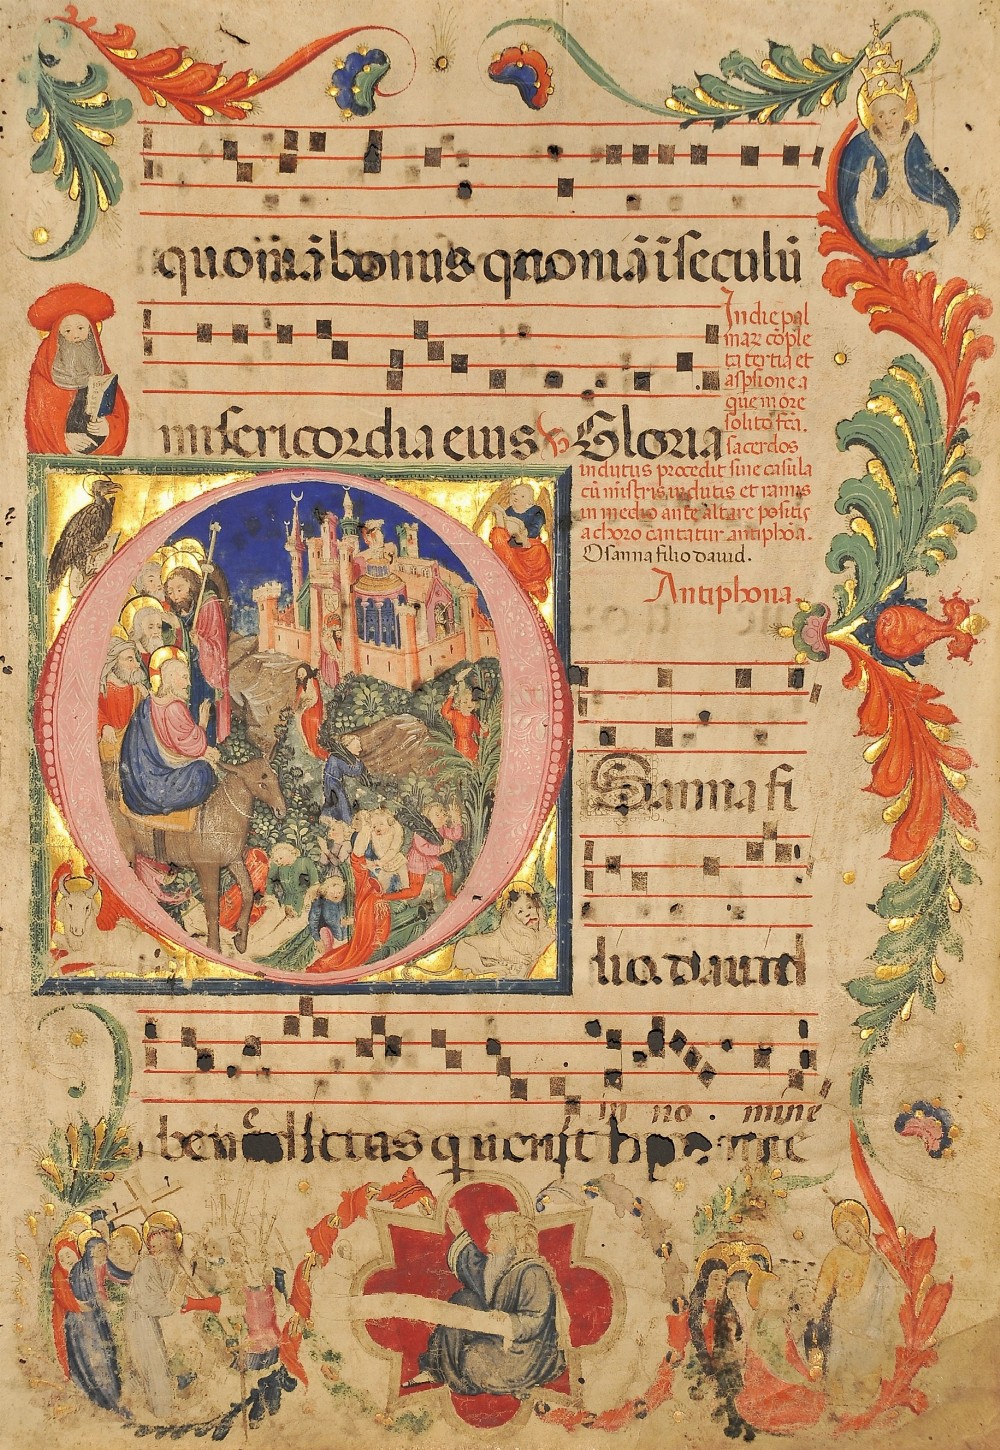 quoniā bonus quoniā ī seculū
misericordia eius Gloria
In die pal
maꝝ cōple
ta tertia et
aspsione a
que more
solito fca.
sacerdos
indutus procedit sine casula
cū mistris indutis et ramis
in medio ante altare positis
a choro cantatur antiphōa.
Osanna filio dauid.
Antiphona.
Sanna fi
lio dauid
in no . mine
benedictus qui uenit